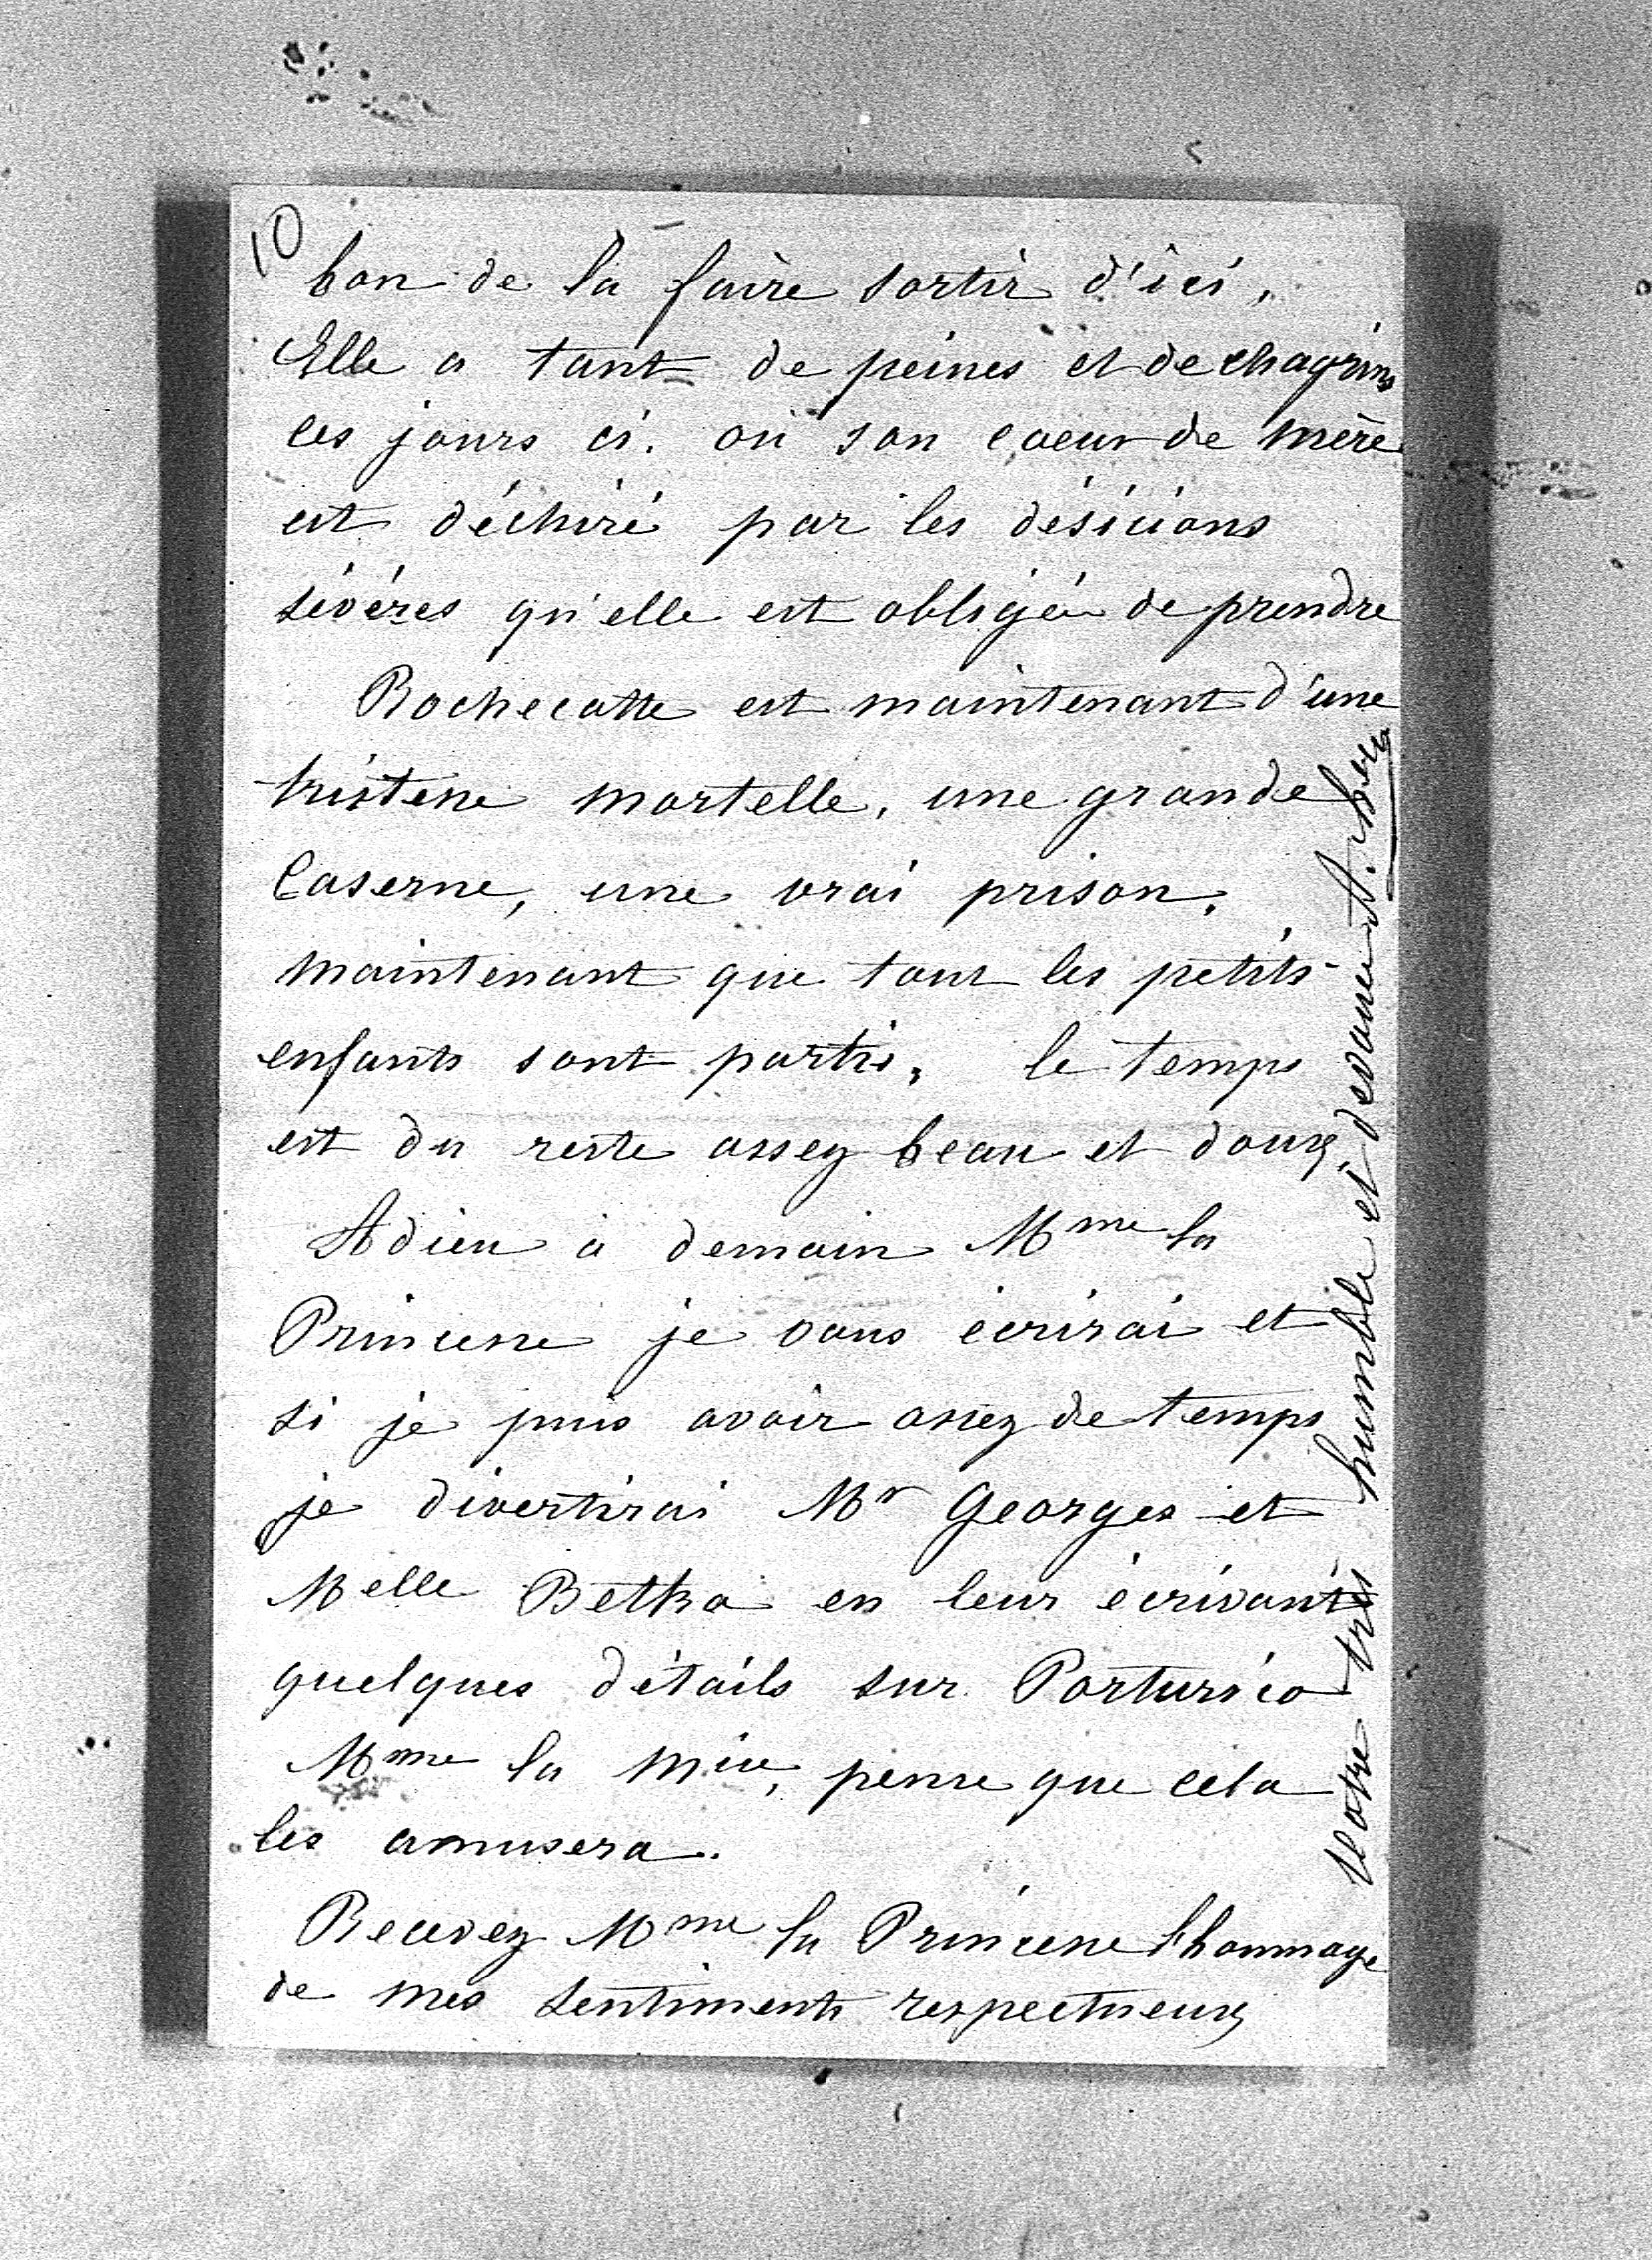 10
bon de la faire sortir d'ici,
Elle a tant de peines et de chagrins
ces jours ci. où son coeur de mère
est déchiré par les désicions
sévéres qu'elle est obligée de prendre
Rochecotte est maintenant d'une
tristesse mortelle, une grande
Caserne, une vrai prison.
maintenant que tous les petits-
enfants sont partis, le temps
est du reste assez beau et doux.
Adieu à demain Mme la
Princesse je vous écrirai et
si je puis avoir assez de temps
je divertirai Mr Georges et
Melle Betka en leur écrivant
quelques détails sur Porturico
Mme la Mise, pense que cela
les amusera.
Recevez Mme la Princesse l'hommage
de mes sentiments respectueux
Votre très humble et dévouée A.